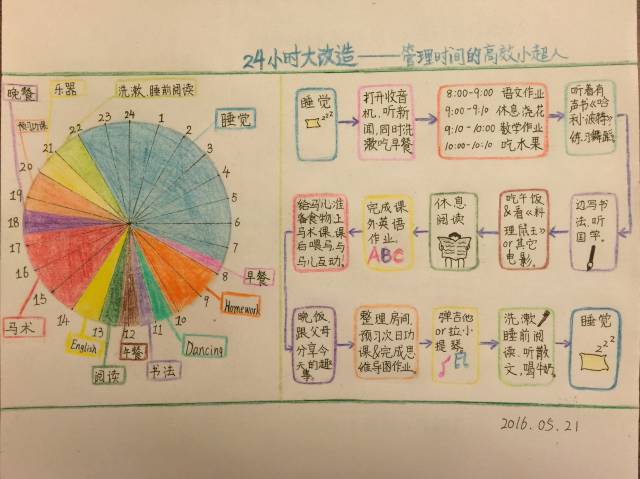 24小时大改造——管理时间的高效小超人
晚餐
乐器
洗漱.睡前阅读
预习功课
睡觉
早餐
Homework
Dancing
书法
午餐
阅读
English
马术
24
1
2
3
4
5
6
7
8
9
10
11
12
13
14
15
16
17
18
19
20
21
22
23
睡觉
zzz
打开收音
机,听新
闻,同时洗
漱吃早餐
8:00-9:00 语文作业
9:00-9:10 休息浇花
9:10-10:00 数学作业
10:00-10:10 吃水果
听着有
声书《哈
利·波特》
练习舞蹈
边写书
法,听
国学.
吃午饭
&看《料
理鼠王》
or其它
电影.
休息
阅读
完成课
外英语
作业.
ABC
给马儿准
备食物,上
马术课.课
后喂马,与
马儿互动!
晚饭
跟父母
分享今
天的趣
事.
整理房间.
预习次日功
课&完成思
维导图作业.
弹吉他
or拉小
提琴
洗漱
睡前阅
读.听散
文,喝牛奶.
睡觉
zzz
2016.05.21